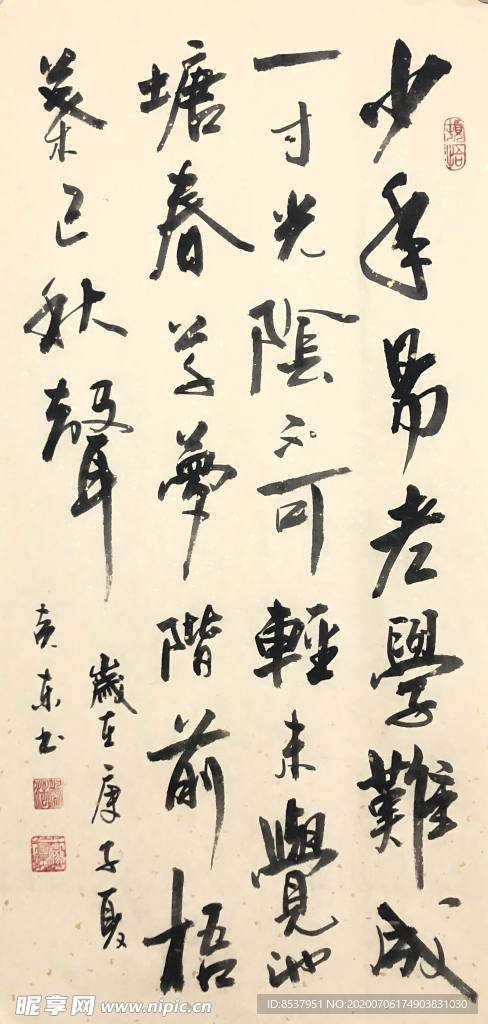 少年易老學難成
一寸光陰不可輕未覺池
塘春草夢階前梧
葉已秋聲
歲在庚子夏
東书
昵享网 www.nipic.cn
ID:8537951 NO:20200706174903831030